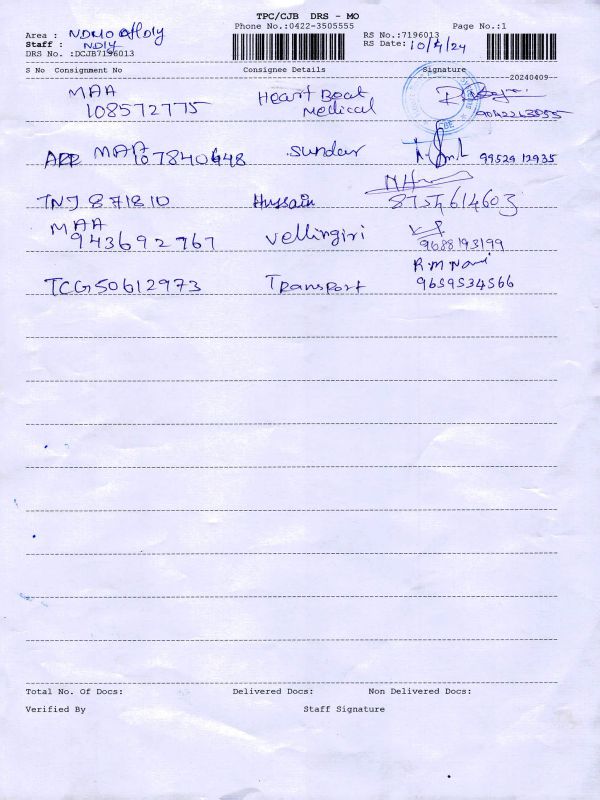 TPC/CJB DRS - MO
Phone No.:0422-3505555 Page No.:1
Area : NDMO
Staff : NDly
RS No.:7196013
RS Date: 10/4/24
DRS No. :DCJB7196013
S No Consignment No Consignee Details Signature
20240409-
MAA
108572775 Heart Beat
Medical
MAA 107840648 Sundar 99529 12935
TNJ 871810 Hussain 8754614603
MAA
943692767 Vellingiri 9688193199
TCG50612973 Transport 9659534566
Total No. Of Docs: Delivered Docs: Non Delivered Docs:
Verified By Staff Signature